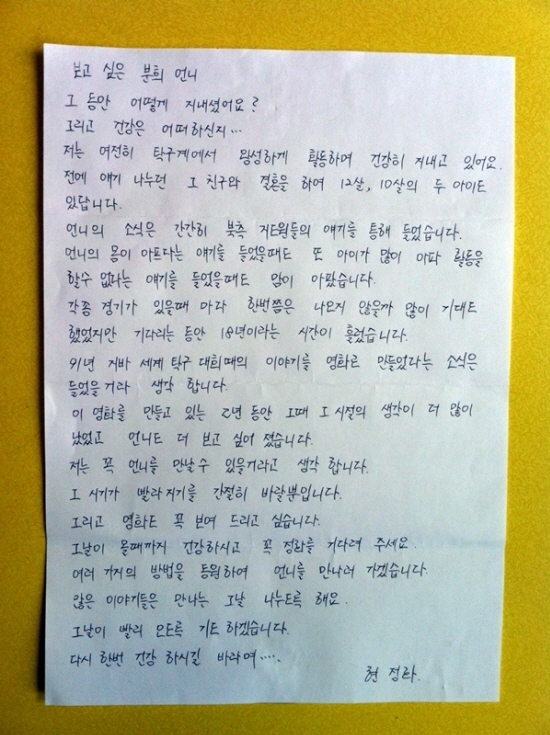 보고 싶은 분희 언니
그 동안 어떻게 지내셨어요?
그리고 건강은 어떠하신지...
저는 여전히 탁구계에서 왕성하게 활동하며 건강히 지내고 있어요.
전에 얘기 나누던 그 친구와 결혼을 하여 12살, 10살의 두 아이도
있답니다.
언니의 소식은 간간히 북측 임원들의 얘기를 통해 들었습니다.
언니의 몸이 아프다는 얘기를 들었을때도 또 아이가 많이 아파 활동을
할수 없다는 얘기를 들었을때도 맘이 아팠습니다.
각종 경기가 있을때 마다 한번쯤은 나오지 않을까 많이 기대도
했었지만 기다리는 동안 18년이라는 시간이 흘렀습니다.
91년 지바 세계 탁구 대회때의 이야기를 영화로 만들었다는 소식은
들었을거라 생각 합니다.
이 영화를 만들고 있는 2년 동안 그때 그 시절의 생각이 더 많이
났었고 언니도 더 보고 싶어 졌습니다.
저는 꼭 언니를 만날수 있을거라고 생각 합니다.
그 시기가 빨라지기를 간절히 바랄뿐입니다.
그리고 영화도 꼭 보여 드리고 싶습니다.
그날이 올때까지 건강하시고 꼭 정화를 기다려 주세요.
여러 가지의 방법을 동원하여 언니를 만나러 가겠습니다.
많은 이야기들은 만나는 그날 나누도록 해요.
그날이 빨리 오도록 기도 하겠습니다.
다시 한번 건강 하시길 바라며....
현 정화.